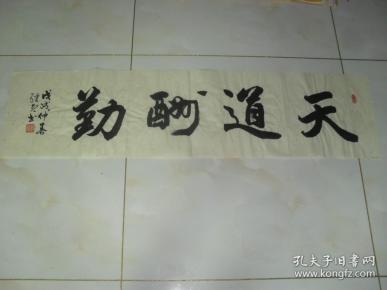 天道酬勤
戊戌仲春
孔夫子旧书网
www.kongfz.com